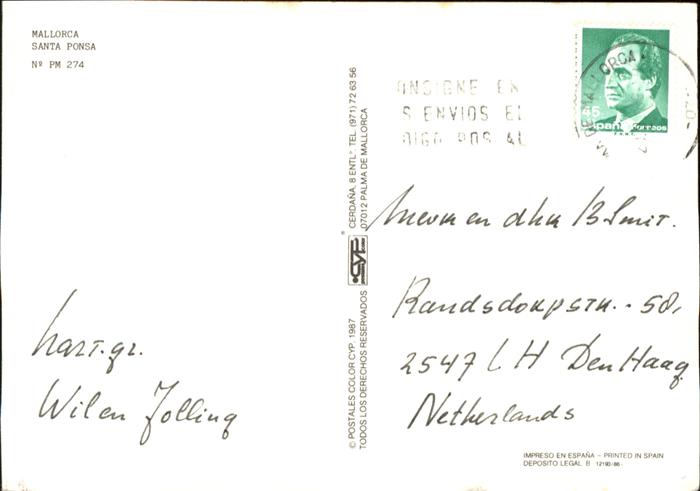 MALLORCA
SANTA PONSA
Nº PM 274
hart. gr.
Wil en Jolling
© POSTALES COLOR CYP, 1987
TODOS LOS DERECHOS RESERVADOS
CYP
CERDAÑA, 8 ENTLº TEL. (971) 72 63 56
07012 PALMA DE MALLORCA
ONSIGNE EN
S ENVIOS EL
DIGO POSTAL
MALLORCA
45
España Correos
Mevr. en dhr B Smit.
Randsdorpstr. - 58,
2547 LH Den Haag
Netherlands
IMPRESO EN ESPAÑA – PRINTED IN SPAIN
DEPOSITO LEGAL B 12193/86